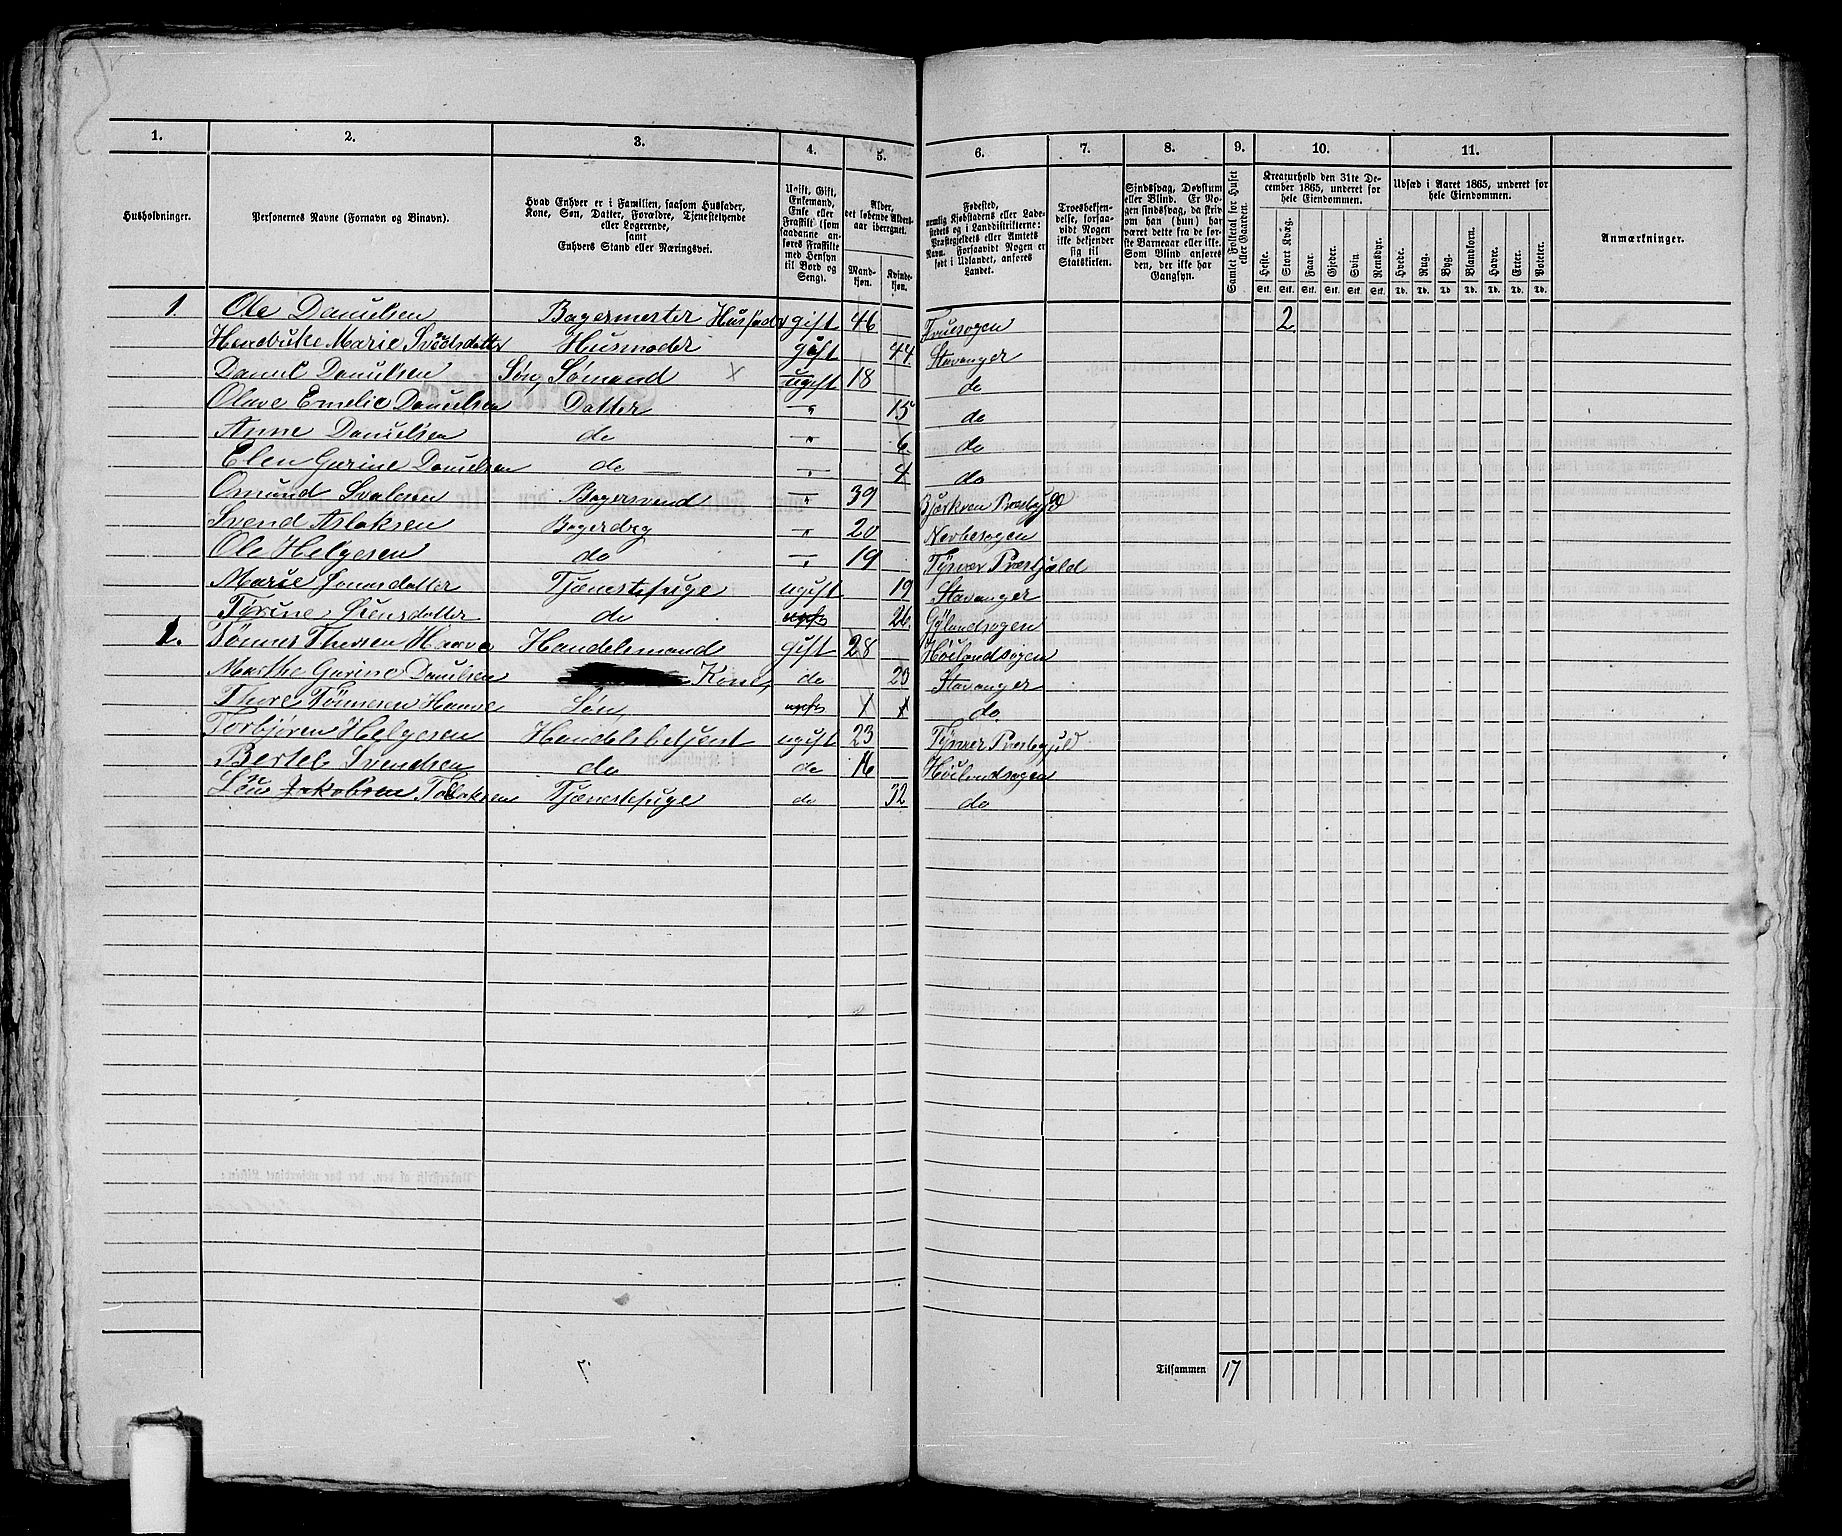 1. 2. 3. 4. 5. 6. 7. 8. 9. 10. 11.
Husholdninger.
Personernes Navne (Fornavn og Binavn).
Hvad Enhver er i Familien, saasom Husfader, Kone, Søn, Datter, Forældre, Tjenestetyende eller Logerende, samt Enhvers Stand eller Næringsvei.
Ugift, Gift, Enkemand, Enke eller Fraskilt (som saadanne anføres Fraskilte med Hensyn til Bord og Seng).
Alder, det løbende Aldersaar iberegnet.
Mandkjøn. Kvindekjøn.
Fødested, nemlig Kjøbstadens eller Ladestedets og i Landdistrikterne: Præstegjeldets eller Amtets Navn. Forsaavidt Nogen er født i Udlandet, anføres Landet.
Troesbekjendelse, forsaavidt Nogen ikke bekjender sig til Statskirken.
Sindssvag, Døvstum eller Blind. Er Nogen sindssvag, da skriv om han (hun) har været dette fra de første Barneaar eller ikke. Som Blind anføres den, der ikke har Gangsyn.
Samlet Folketal for Huset eller Gaarden.
Kreaturhold den 31te December 1865, underet for hele Eiendommen.
Heste. Stort Kvæg. Faar. Gjeder. Svin. Rensdyr.
Stk. Stk. Stk. Stk. Stk. Stk.
Udsæd i Aaret 1865, underet for hele Eiendommen.
Hvede. Rug. Byg. Blandkorn. Havre. Erter. Poteter.
Td. Td. Td. Td. Td. Td. Td.
Anmærkninger.
1. Ole Danielsen Bagermester Husfader gift 46 2
Marie Husmoder gift 44 Stavanger
Daniel Danielsen Søn, Sømand X ugift 18 do
Olave Emelie Danielsen Datter " 15 do
Anne Danielsen do " 6 do
Elen Gurine Danielsen do " 4 do
Omund Bagersvend " 39
Svend Aslaksen " 20
Ole Helgesen do " 19 Tysvær
Marie Tjænestepige ugift 19 Stavanger
do 26
Haave Handelsmand gift 28 Høilandsogen
Marthe Gurine Danielsen Kone, do 20 Stavanger
Thore Tønnesen Haave Søn X X do
Torbjøren Helgesen Handelsbetjent ugift 23
Bertel Svendsen do do 16 Høilandsogen
Tjænestepige do 32 do
Tilsammen 17